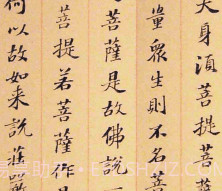 大身須菩提菩薩
量眾生則不名菩
菩薩是故佛說一
菩提若菩薩作是
何以故如来說莊